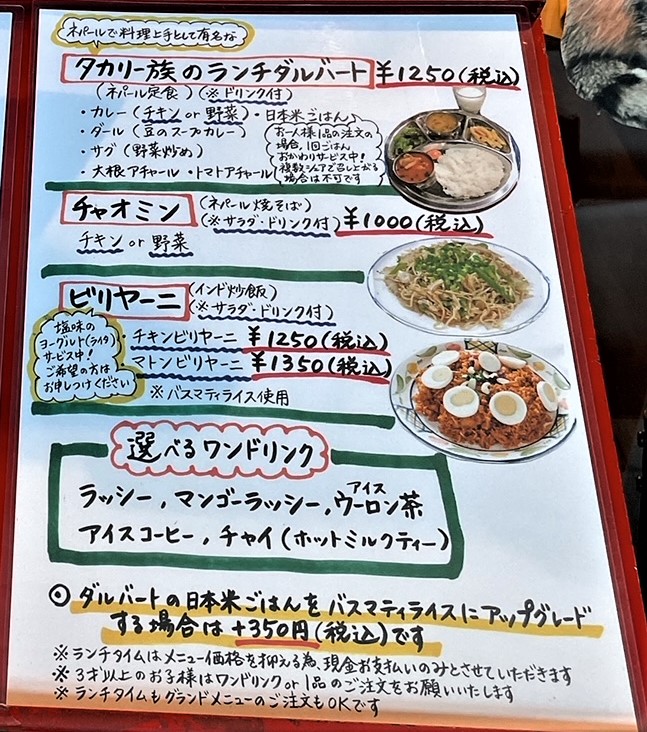 ネパールで料理上手として有名な
タカリー族のランチダルバート ¥1250(税込)
(ネパール定食)(※ドリンク付)
・カレー(チキンor野菜)・日本米ごはん
・ダール(豆のスープカレー)
・サグ(野菜炒め)
・大根アチャール・トマトアチャール
お一人様1品の注文の
場合、1回ごはん
おかわりサービス中!
複数シェアで召し上がる
場合は不可です
チャオミン (ネパール焼そば)
(※サラダ・ドリンク付) ¥1000(税込)
チキン or 野菜
ビリヤーニ (インド炒飯)
(※サラダ・ドリンク付)
塩味の
ヨーグルト(ライタ)
サービス中!
ご希望の方は
お申しつけください
・チキンビリヤーニ ¥1250(税込)
マトンビリヤーニ ¥1350(税込)
※バスマティライス使用
選べるワンドリンク
ラッシー, マンゴーラッシー, アイスウーロン茶
アイスコーヒー, チャイ(ホットミルクティー)
◎ダルバートの日本米ごはんをバスマティライスにアップグレード
する場合は+350円(税込)です
※ランチタイムはメニュー価格を抑える為、現金お支払いのみとさせていただきます
※3才以上のお子様はワンドリンクor1品のご注文をお願いいたします
※ランチタイムもグランドメニューのご注文もOKです